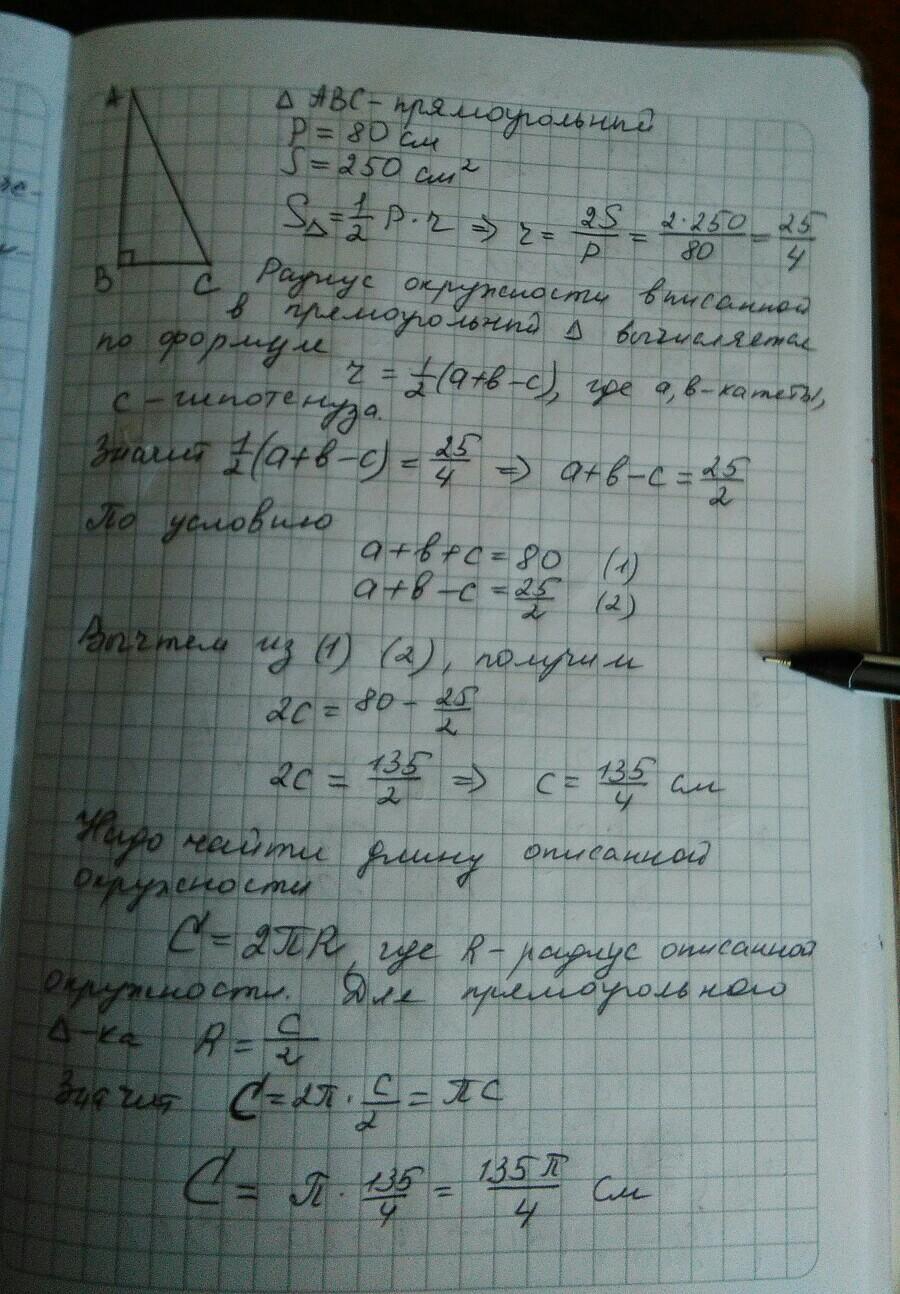 Δ ABC - прямоугольный
P = 80 см
S = 250 см²
S_Δ = 1/2 P · r ⇒ r = 2S/P = 2·250/80 = 25/4
A
B
C
Радиус окружности вписанной
в прямоугольный Δ вычисляется
по формуле
r = 1/2 (a+b-c), где a, b - катеты,
c - гипотенуза.
Значит 1/2 (a+b-c) = 25/4 ⇒ a+b-c = 25/2
По условию
a+b+c = 80 (1)
a+b-c = 25/2 (2)
Вычтем из (1) (2), получим
2c = 80 - 25/2
2c = 135/2 ⇒ c = 135/4 см
Надо найти длину описанной
окружности
C = 2πR, где R - радиус описанной
окружности. Для прямоугольного
Δ-ка R = c/2
Значит C = 2π · c/2 = πc
C = π · 135/4 = 135π/4 см